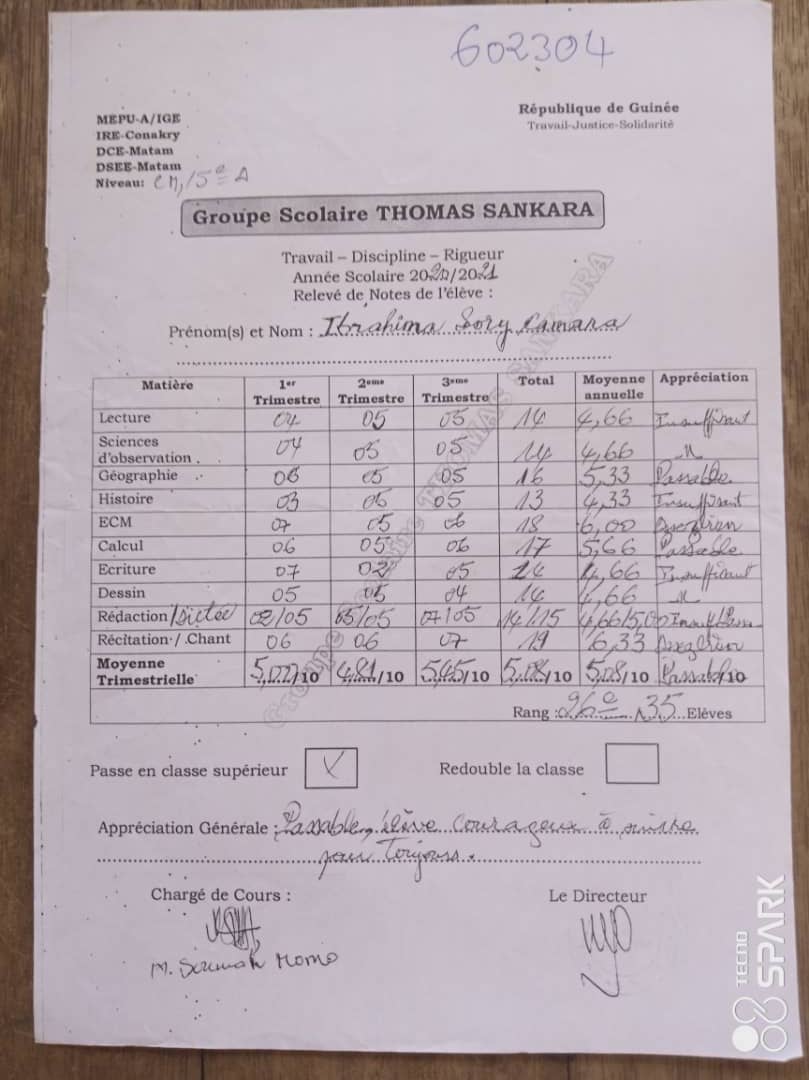 602304
MEPU-A/IGE
IRE-Conakry
DCE-Matam
DSEE-Matam
Niveau: CM1/5e A
République de Guinée
Travail-Justice-Solidarité
Groupe Scolaire THOMAS SANKARA
Travail – Discipline – Rigueur
Année Scolaire 2020/2021
Relevé de Notes de l'élève :
Prénom(s) et Nom : Ibrahima Sory Camara
Matière 1er Trimestre 2eme Trimestre 3eme Trimestre Total Moyenne annuelle Appréciation
Lecture 04 05 05 14 4,66 Insuffisant
Sciences d'observation 04 05 05 14 4,66 _ll_
Géographie 06 05 05 16 5,33 Passable
Histoire 03 05 05 13 4,33 Insuffisant
ECM 07 05 06 18 6,00 Assez bien
Calcul 06 05 06 17 5,66 Passable
Ecriture 07 02 05 14 4,66 Insuffisant
Dessin 05 05 04 14 4,66 _ll_
Rédaction /Dictée 02/05 05/05 07/05 14/15 4,66/5,00
Récitation / Chant 06 06 07 19 6,33 Assez bien
Moyenne Trimestrielle 5,00/10 4,81/10 5,45/10 5,08/10 5,08/10 Passable/10
Rang : 26e / 35 Elèves
Passe en classe supérieur X Redouble la classe
Appréciation Générale : Passable, élève courageux à suivre
pour Toujours.
Chargé de Cours : Le Directeur
M. Soumah Momo
Groupe Scolaire THOMAS SANKARA
TECNO
SPARK